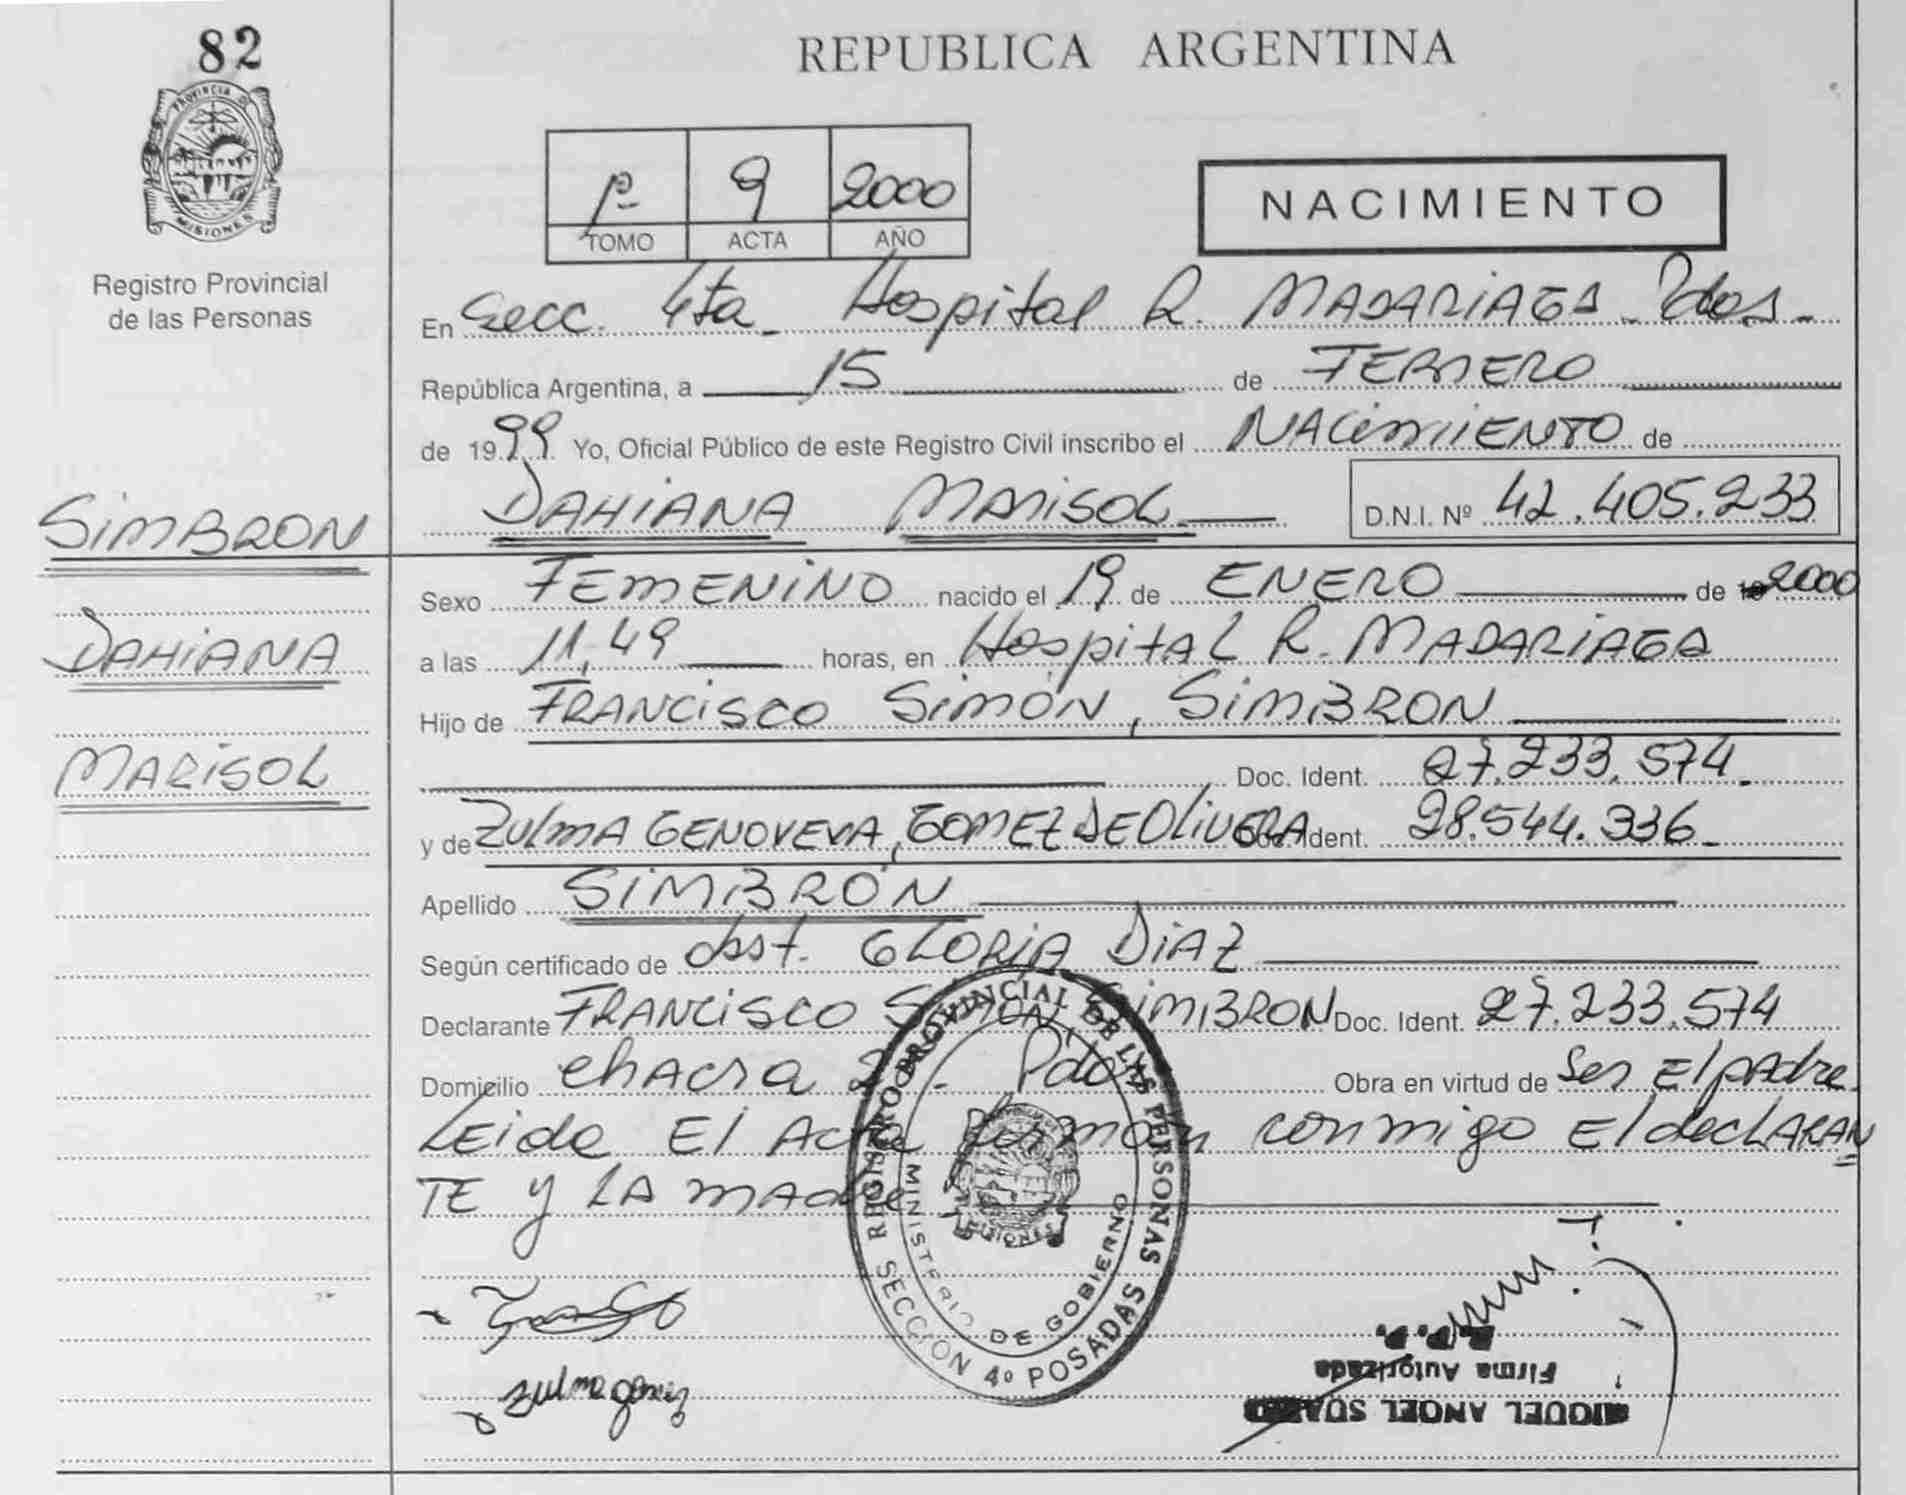 82
PROVINCIA D
MISIONES
Registro Provincial
de las Personas
SIMBRON
DAHIANA
MARISOL
REPUBLICA ARGENTINA
1º 9 2000
TOMO ACTA AÑO
NACIMIENTO
En Secc. 4ta - Hospital R. MADARIAGA - Pdas. -
República Argentina, a 15 de FEBRERO
de 1999 Yo, Oficial Público de este Registro Civil inscribo el NACIMIENTO de
DAHIANA MARISOL D.N.I. Nº 42.405.233
Sexo FEMENINO nacido el 19 de ENERO de 2000
a las 11,49 horas, en Hospital R. MADARIAGA
Hijo de FRANCISCO SIMÓN, SIMBRON
Doc. Ident. 27.233.574
y de ZULMA GENOVEVA, GOMEZ DE OLIVERA Doc. Ident. 28.544.336
Apellido SIMBRÓN
Según certificado de obst. GLORIA DIAZ
Declarante FRANCISCO SIMON, SIMBRON Doc. Ident. 27.233.574
Domicilio chacra Pdas Obra en virtud de Ser El padre
Leida El Acta firman conmigo El decLARAN
TE y LA MADRE
REGISTRO PROVINCIAL DE LAS PERSONAS
MINISTERIO DE GOBIERNO
MISIONES
SECCIÓN 4º POSADAS
Zulma
Firma Autorizada
MIGUEL ANGEL